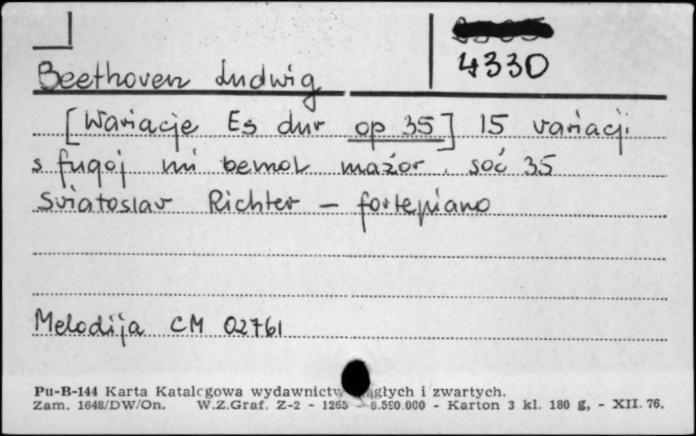 4330
Beethoven Ludwig
[Wariacje Es dur op 35] 15 variacji
s fugoj mi bemol mažor. soč 35
Sviatoslav Richter – fortepiano
Melodija CM 02761
Pu-B-144 Karta Katalogowa wydawnictw ciągłych i zwartych.
Zam. 1648/DW/On. W.Z.Graf. Z-2 - 1265 6.550.000 - Karton 3 kl. 180 g, - XII. 76.